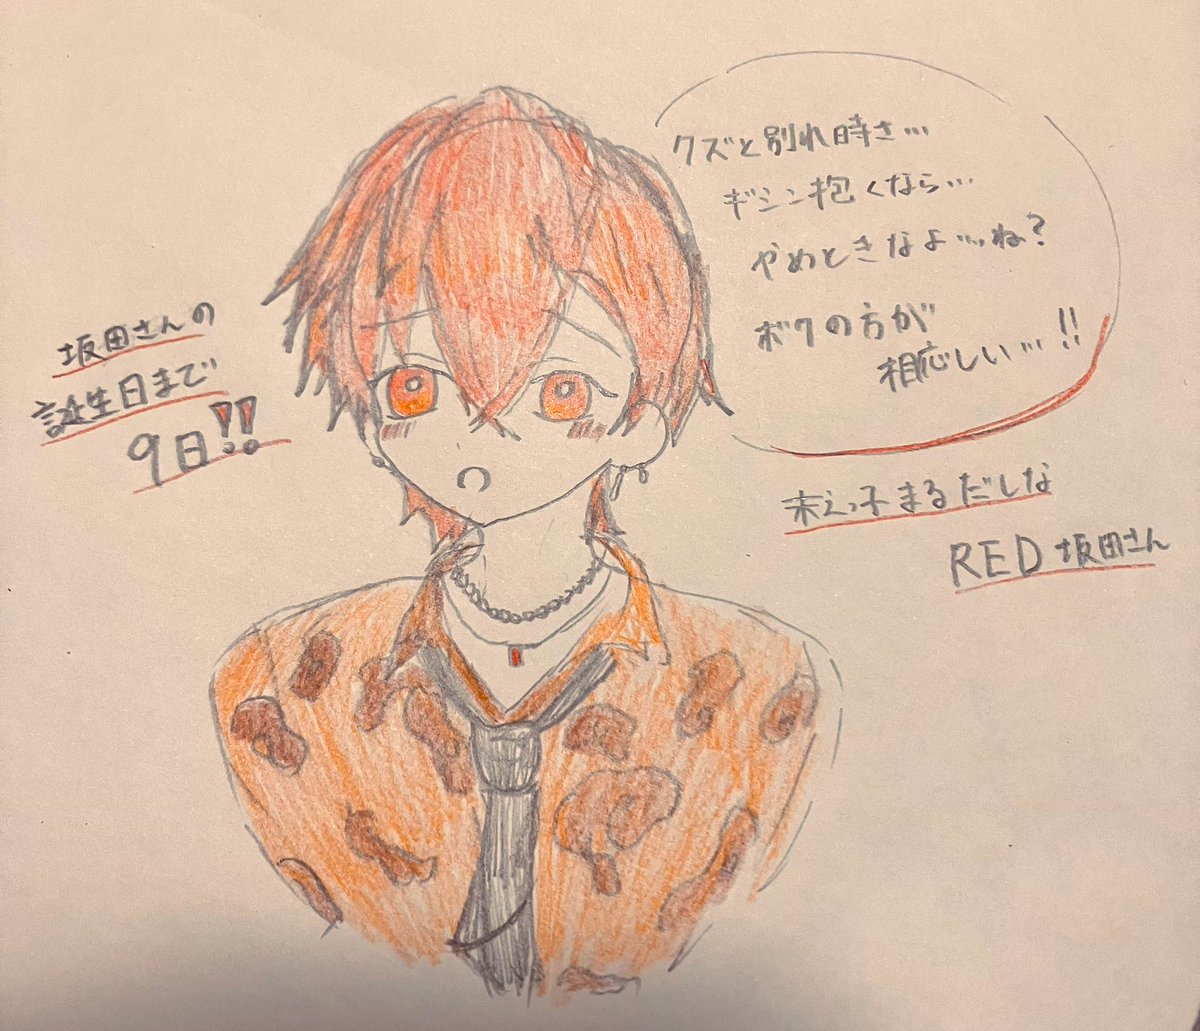 坂田さんの
誕生日まで
9日!!
クズと別れ時さ…
ギシン抱くなら…
やめときなよ…ね?
ボクの方が
相応しい…!!
末っ子まるだしな
RED 坂田さん